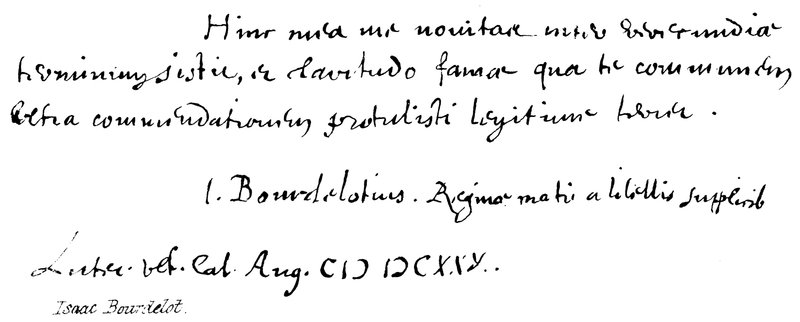 Hinc mea me novitate inter verecundiæ
terminum sistit, et claritudo famæ qua te communem
vltra commendationem protulisti legitime terret.
I. Bourdelotius. Reginæ matri a libellis supplicib
Lutet. vet. Cal. Aug. CIↃ IↃCXXV.
Isaac Bourdelot.